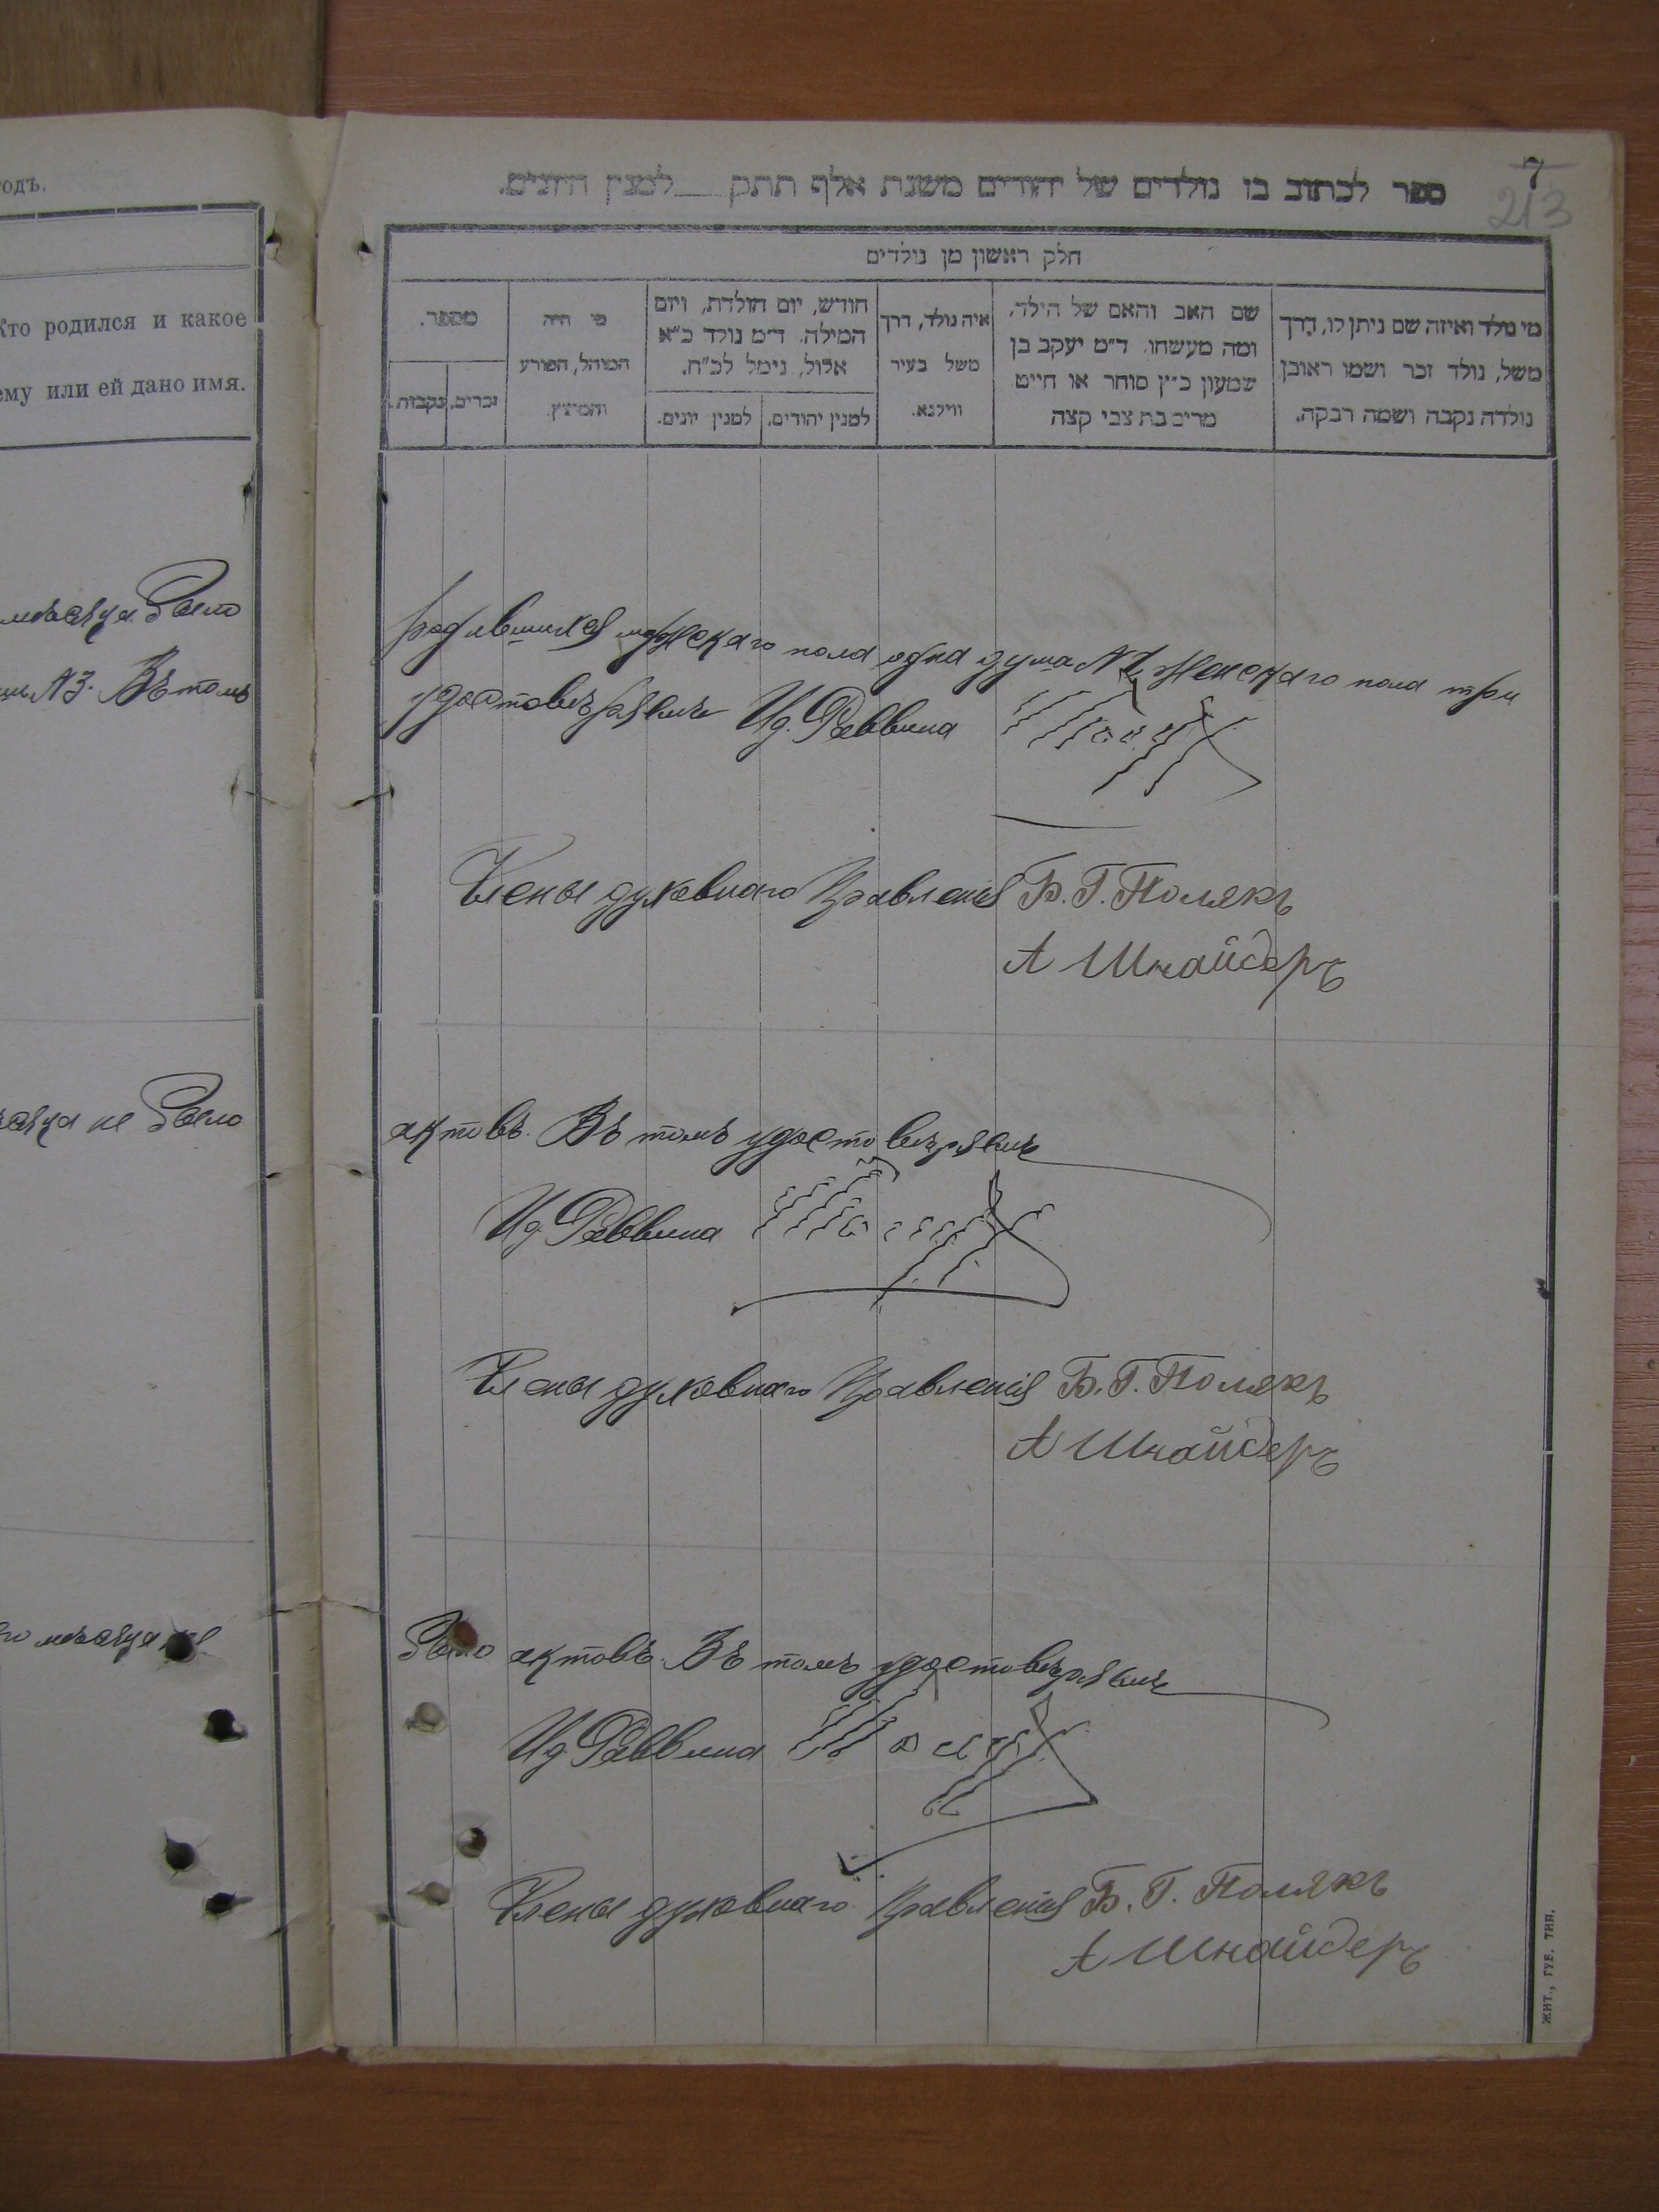 одъ.
Кто родился и какое
ему или ей дано имя.
мѣсяца было
№ 3. Въ томъ
не было
мѣсяца не
7
213
ספר לכתוב בו נולדים של יהודים משנת אלף תתק ___ למנין היונים.
חלק ראשון מן נולדים
מי נולד ואיזה שם ניתן לו, דרך
משל, נולד זכר ושמו ראובן
נולדה נקבה ושמה רבקה.
שם האב והאם של הילד,
ומה מעשהו. ד״מ יעקב בן
שמעון כ״ץ סוחר או חייט
מרים בת צבי קצה
איה נולד, דרך
משל בעיר
ווילנא.
חודש, יום הולדת, ויום
המילה. ד״מ נולד כ״א
אלול, נימל לכ״ח.
למנין יהודים.
למנין יונים.
מי היה
המוהל, הפורע
והמוצץ.
מספר.
זכרים.
נקבות.
родившихся мужскаго пола одна душа № 1, женскаго пола три
удостовѣряемъ И д. Раввина
Члены духовнаго Правленія Б. Г. Полякъ
А Шнайдеръ
актовъ. Въ томъ удостовѣряемъ
И д. Раввина
Члены духовнаго Правленія Б. Г. Полякъ
А Шнайдеръ
было актовъ. Въ томъ удостовѣряемъ
И д. Раввина
Члены духовнаго Правленія Б. Г. Полякъ
А Шнайдеръ
ЖИТ., ГУБ. ТИП.